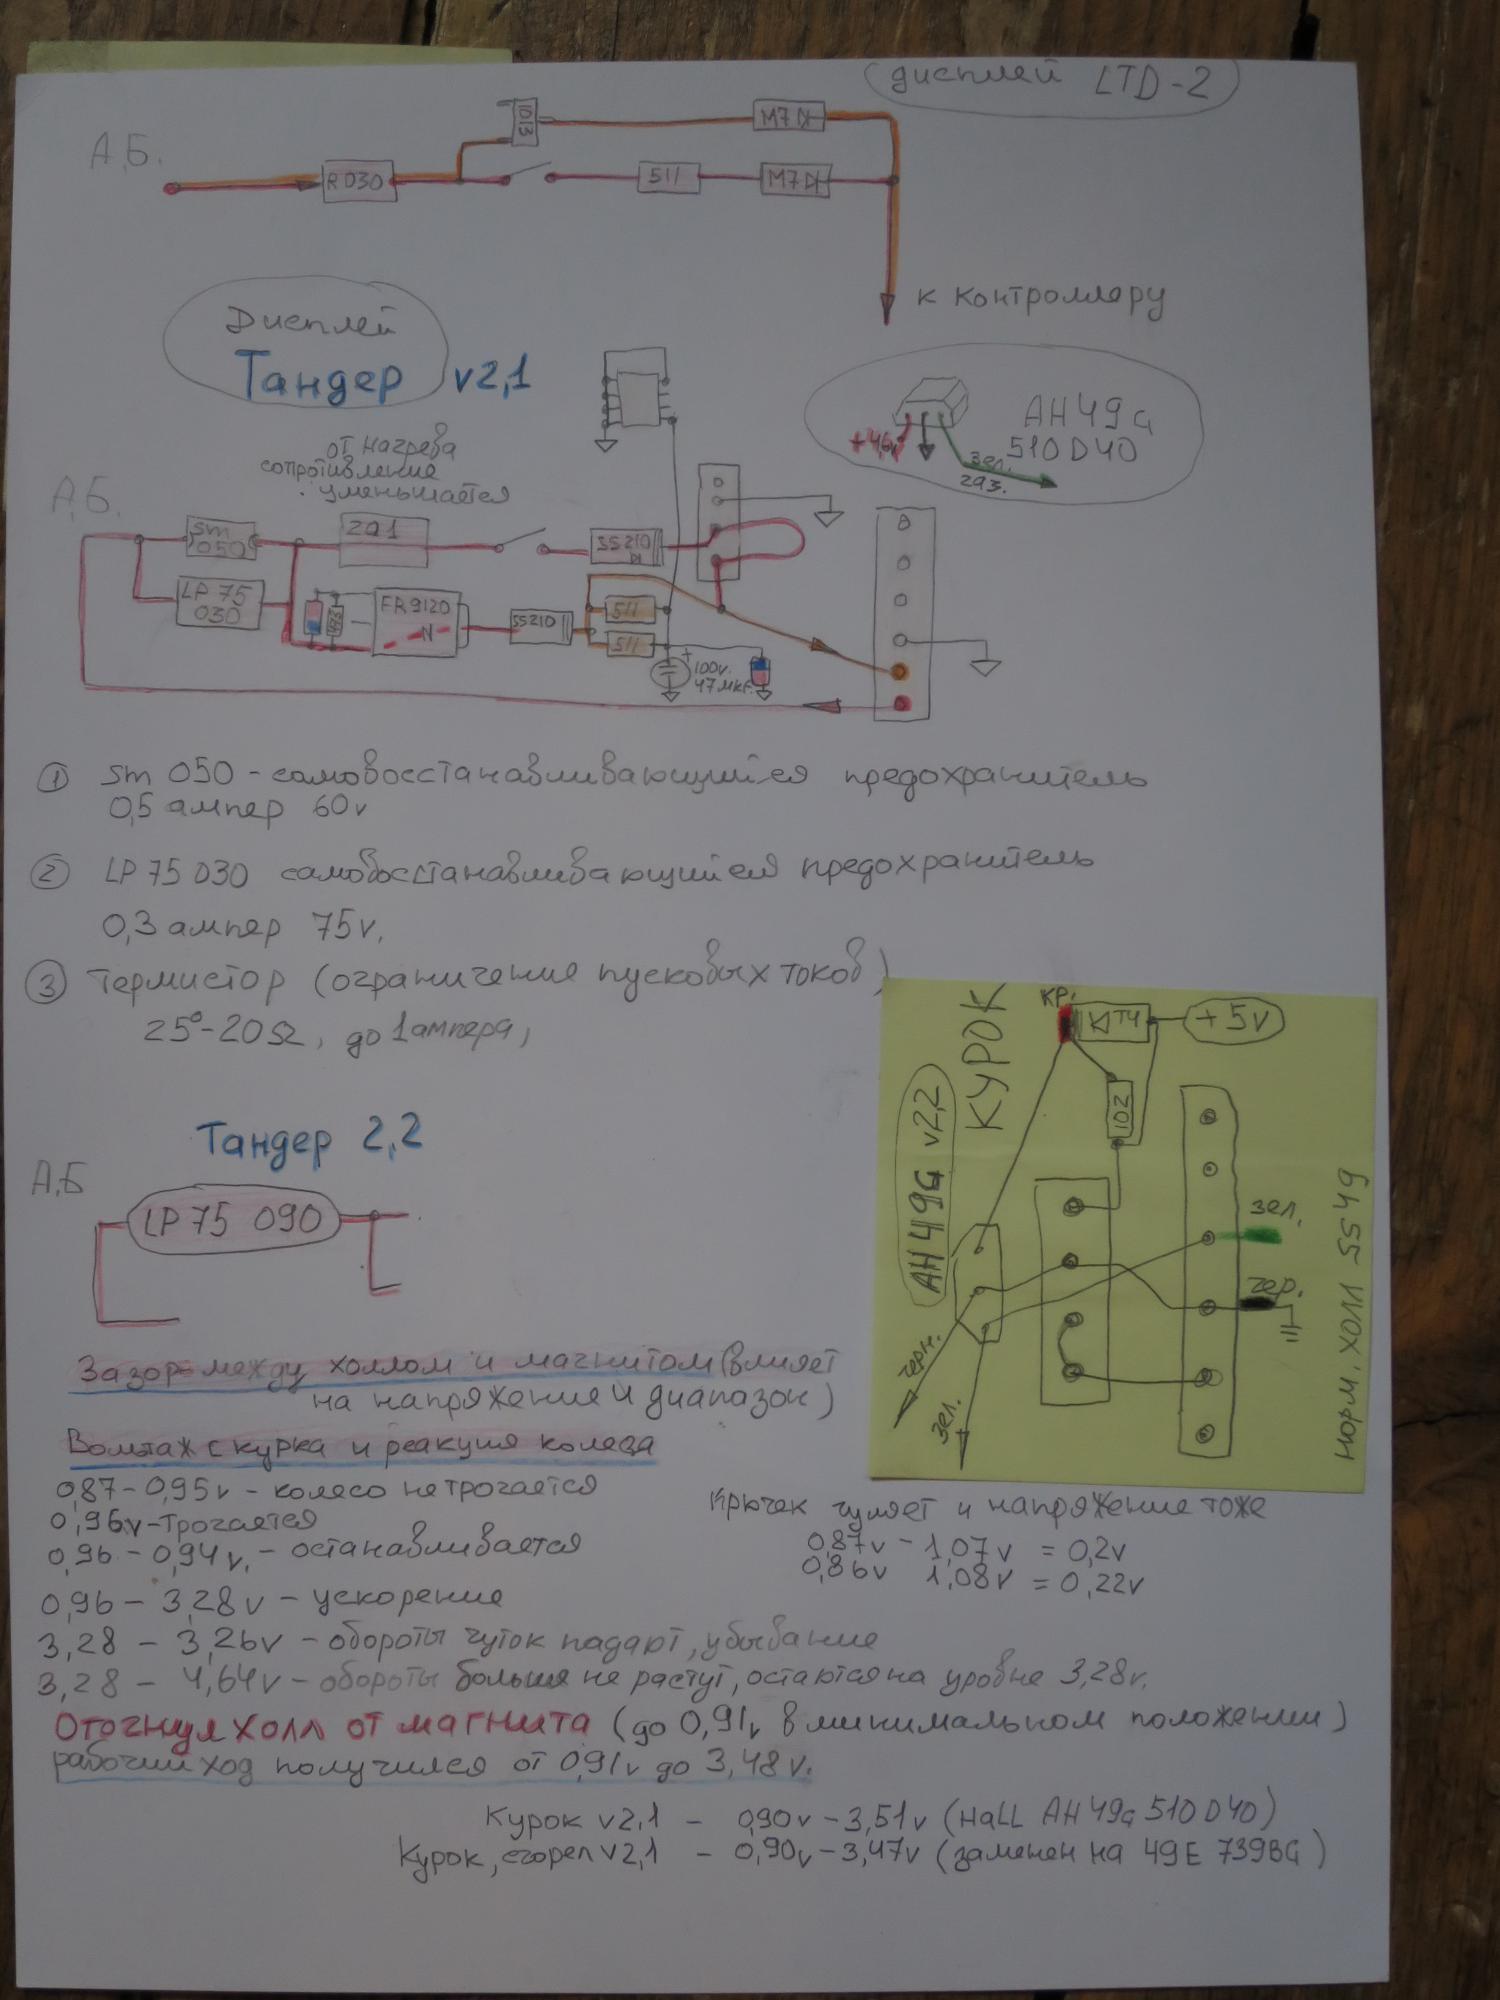 дисплей LTD-2
А.Б.
R030
1013
M7
511
M7
к контроллеру
Дисплей
Тандер v2,1
AH49G
510D40
+4,6v
зел.
газ.
от нагрева
сопротивление
уменьшается
А.Б.
sm
050
2Ω1
SS210
LP75
030
493
FR9120
N
SS210
511
511
+
100v.
47мкf.
① sm 050 - самовосстанавливающийся предохранитель
0,5 ампер 60v
② LP75 030 самовосстанавливающийся предохранитель
0,3 ампер 75v.
③ термистор (ограничение пусковых токов)
25°-20Ω, до 1 ампера,
Тандер 2,2
А,Б
LP75 090
КУРОК
кр.
+5v
102
AH49G v2,2
зел.
чер.
черн.
зел.
норм. холл SS49
Зазор между холлом и магнитом (влияет
на напряжение и диапазон)
Вольтаж с курка и реакция колеса
0,87-0,95v - колесо не трогается
0,96v - трогается
0,96 - 0,94v. - останавливается
0,96 - 3,28v - ускорение
3,28 - 3,26v - обороты чуток падают, убывание
3,28 - 4,64v - обороты больше не растут, остаются на уровне 3,28v.
Крючек гуляет и напряжение тоже
0,87v - 1,07v = 0,2v
0,86v 1,08v = 0,22v
Отогнул холл от магнита (до 0,91v в минимальном положении)
рабочий ход получился от 0,91v до 3,48v.
Курок v2,1 - 0,90v - 3,51v (Hall AH49G 510D40)
Курок, сгорел v2,1 - 0,90v - 3,47v (заменен на 49E 739BG)